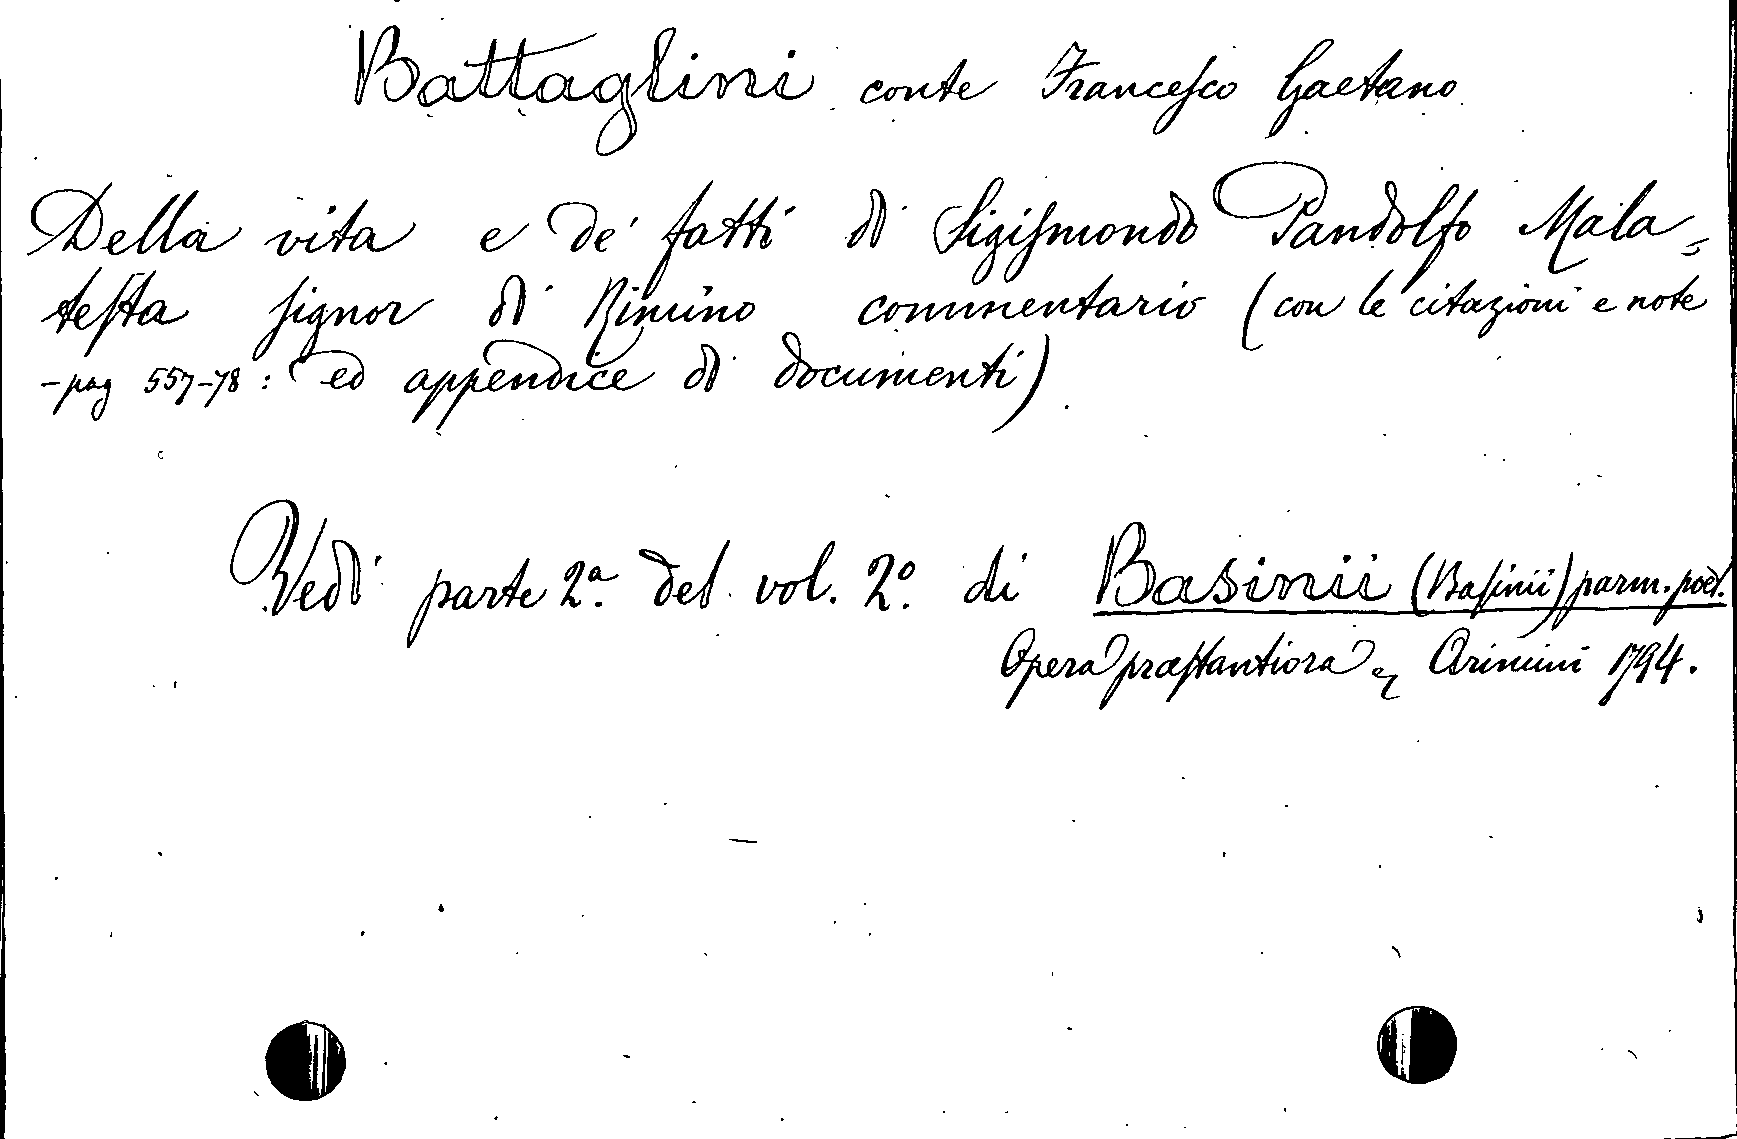 Battaglini conte Francesco Gaetano
Della vita e de' fatti di Sigismondo Pandolfo Mala=
testa signor di Rimino commentario (con le citazioni e note
- pag 557-78: ed appendice di documenti).
Vedi parte 2ª. del vol. 2º. di Basinii (Basinii) parm. poet.
Opera præstantiora Arimini 1794.